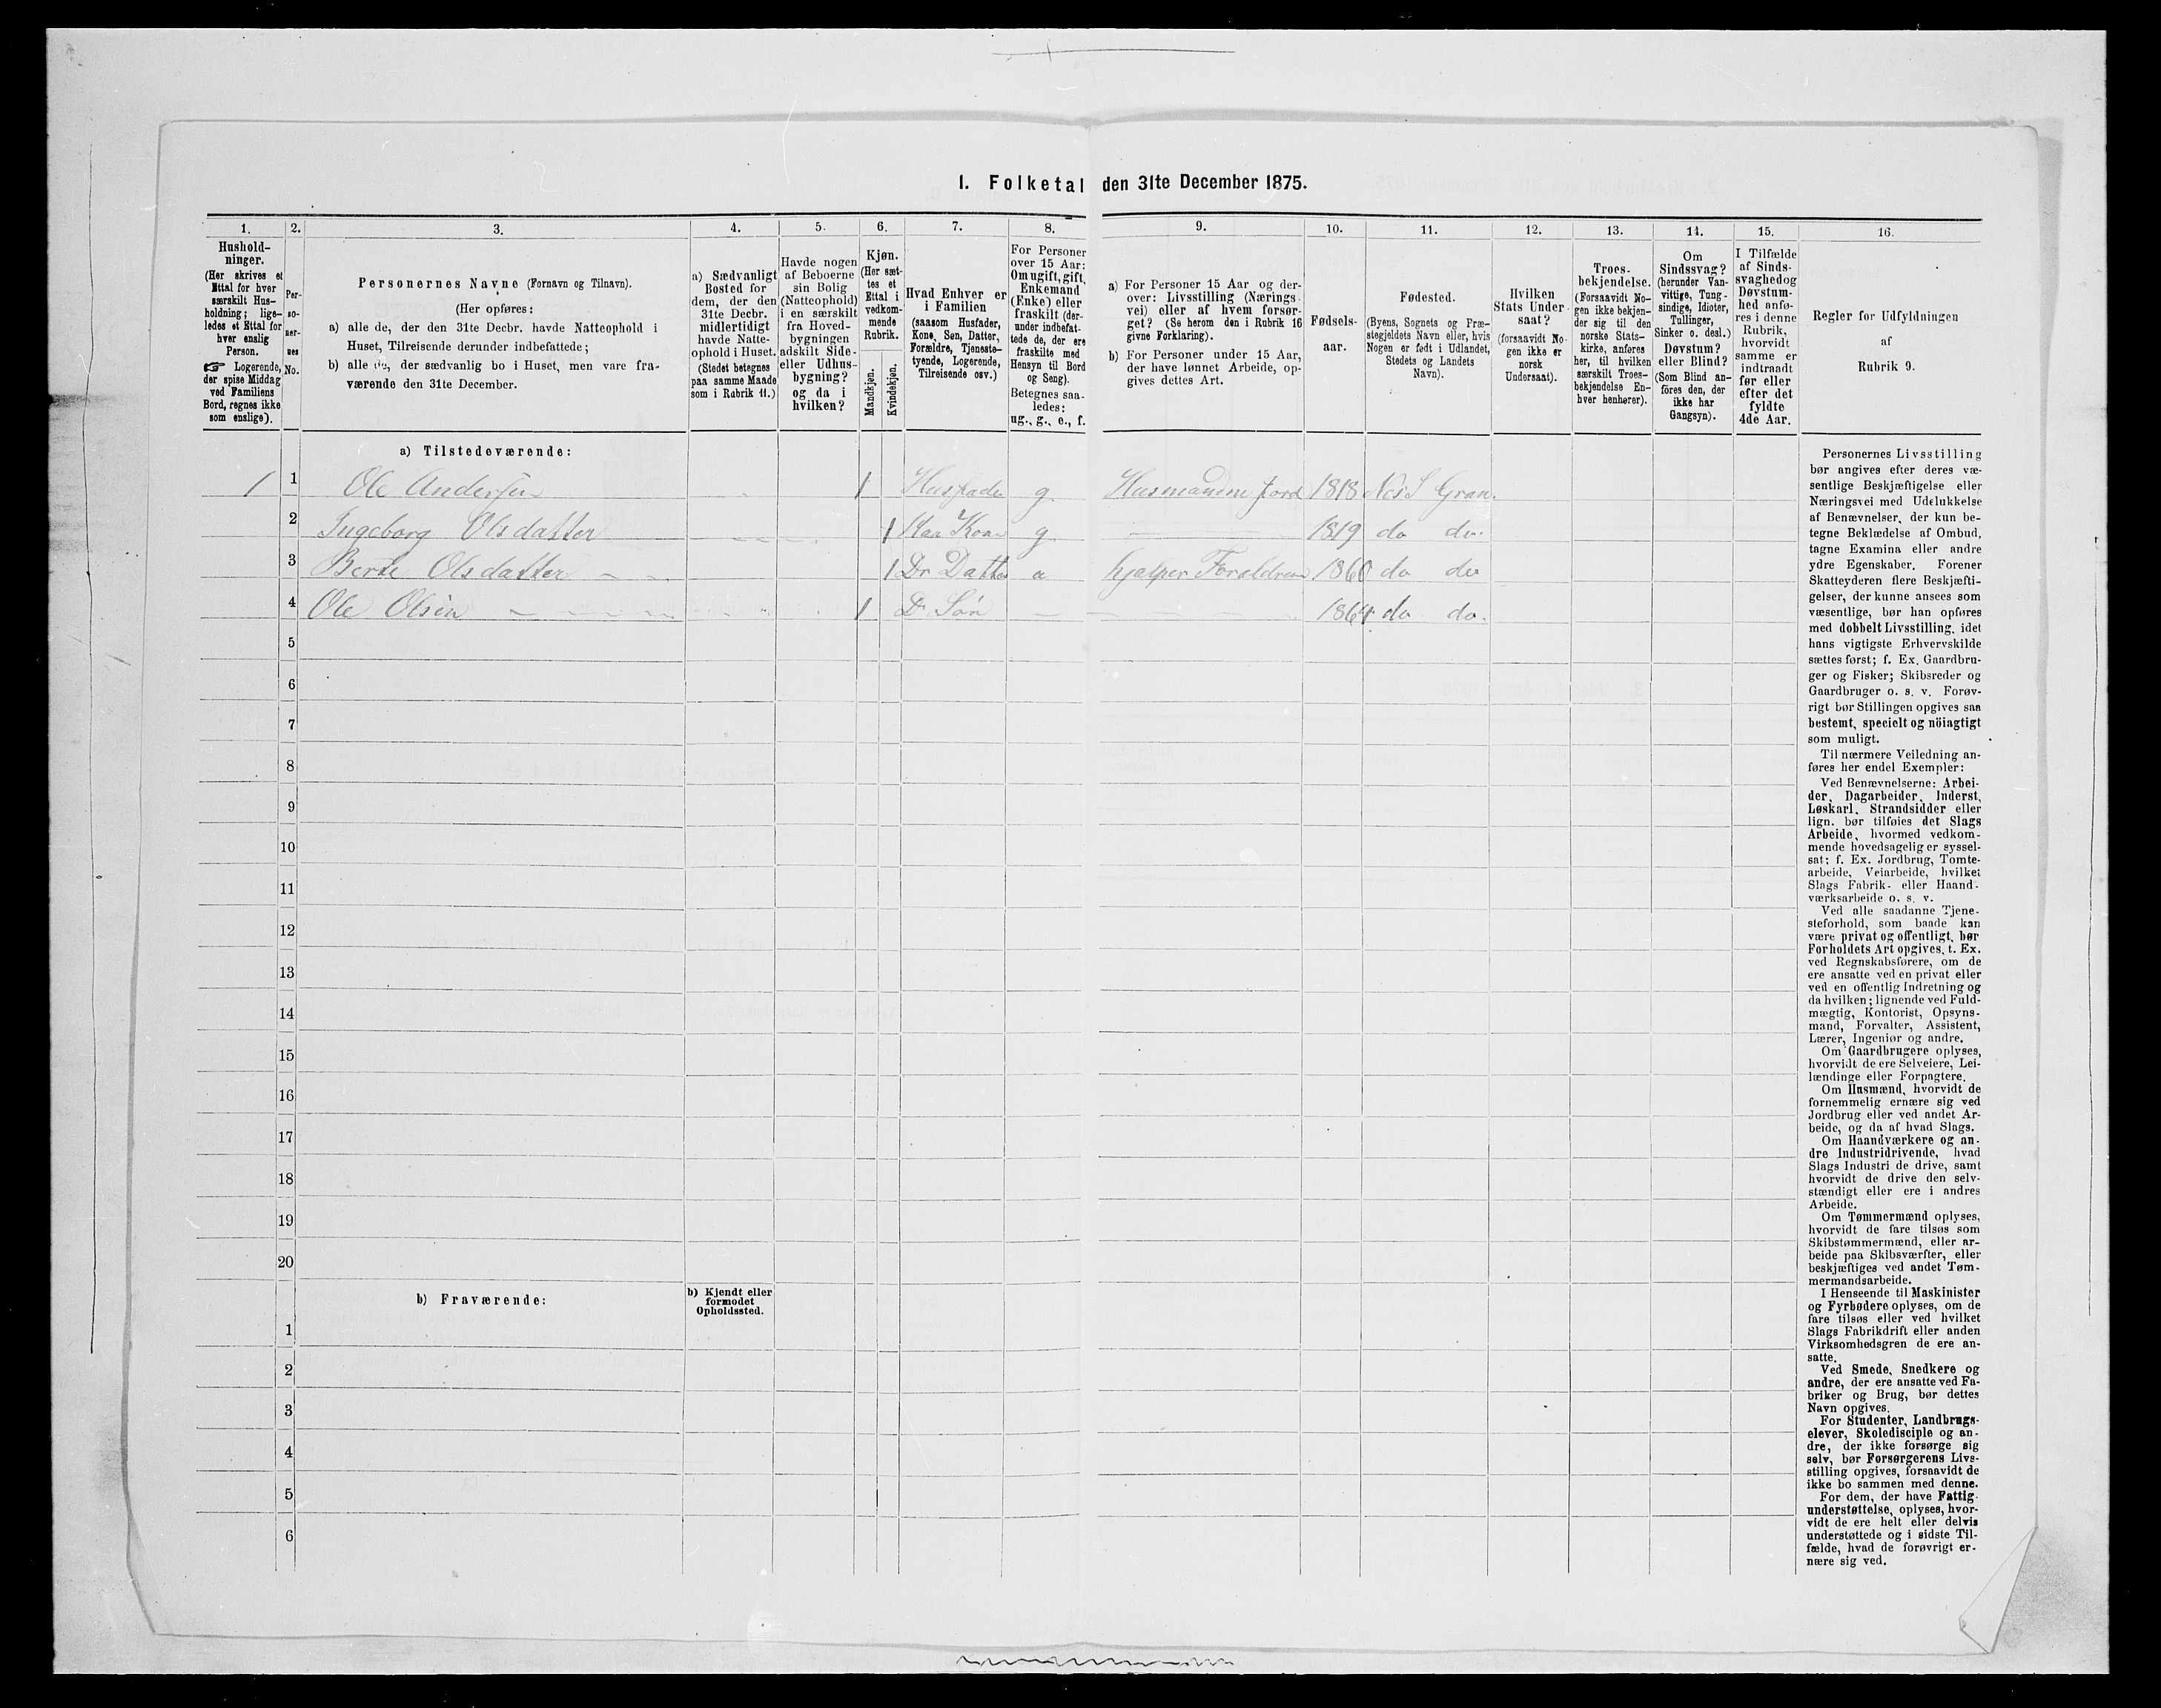 I. Folketal den 31te December 1875.
1.
Hushold-
ninger.
(Her skrives et
Ettal for hver
særskilt Hus-
holdning; lige-
ledes et Ettal for
hver enslig
Person.
☞ Logerende,
der spise Middag
ved Familiens
Bord, regnes ikke
som enslige).
2.
Per-
so-
ner-
nes
No.
3.
Personernes Navne (Fornavn og Tilnavn).
(Her opføres:
a) alle de, der den 31te Decbr. havde Natteophold i
Huset, Tilreisende derunder indbefattede;
b) alle de, der sædvanlig bo i Huset, men vare fra-
værende den 31te December.
4.
a) Sædvanligt
Bosted for
dem, der den
31te Decbr.
midlertidigt
havde Natte-
ophold i Huset.
(Stedet betegnes
paa samme Maade
som i Rubrik 11.)
5.
Havde nogen
af Beboerne
sin Bolig
(Natteophold)
i en særskilt
fra Hoved-
bygningen
adskilt Side-
eller Udhus-
bygning?
og da i
hvilken?
6.
Kjøn.
(Her sæt-
tes et
Ettal i
vedkom-
mende
Rubrik.
Mandkjøn.
Kvindekjøn.
7.
Hvad Enhver er
i Familien
(saasom Husfader,
Kone, Søn, Datter,
Forældre, Tjeneste-
tyende, Logerende,
Tilreisende osv.)
8.
For Personer
over 15 Aar:
Om ugift, gift,
Enkemand
(Enke) eller
fraskilt (der-
under indbefat-
tede de, der ere
fraskilte med
Hensyn til Bord
og Seng).
Betegnes saa-
ledes:
ug., g., e., f.
9.
a) For Personer 15 Aar og der-
over: Livsstilling (Nærings-
vei) eller af hvem forsør-
get? (Se herom den i Rubrik 16
givne Forklaring).
b) For Personer under 15 Aar,
der have lønnet Arbeide, op-
gives dettes Art.
10.
Fødsels-
aar.
11.
Fødested.
(Byens, Sognets og Præ-
stegjeldets Navn eller, hvis
Nogen er født i Udlandet,
Stedets og Landets
Navn).
12.
Hvilken
Stats Under-
saat?
(forsaavidt No-
gen ikke er
norsk
Undersaat).
13.
Troes-
bekjendelse.
(Forsaavidt No-
gen ikke bekjen-
der sig til den
norske Stats-
kirke, anføres
her, til hvilken
særskilt Troes-
bekjendelse En-
hver henhører).
14.
Om
Sindssvag?
(herunder Van-
vittige, Tung-
sindige, Idioter,
Tullinger,
Sinker o. desl.)
Døvstum?
eller Blind?
(Som Blind an-
føres den, der
ikke har
Gangsyn).
15.
I Tilfælde
af Sinds-
svaghed og
Døvstum-
hed anfø-
res i denne
Rubrik,
hvorvidt
samme er
indtraadt
før eller
efter det
fyldte
4de Aar.
16.
Regler for Udfyldningen
af
Rubrik 9.
a) Tilstedeværende:
1 1 Ole Andersen 1 Husfader g. Husmand m jord 1818 Nes S Gran.
2 Ingeborg Olsdatter 1 Kone g 1819 do do.
3 Berte Olsdatter 1 Datter hjælper Foraldrene 1860 do do
4 Ole Olsen 1 Søn 1864 do do.
5
6
7
8
9
10
11
12
13
14
15
16
17
18
19
20
b) Fraværende:
b) Kjendt eller
formodet
Opholdssted.
1
2
3
4
5
6
Personernes Livsstilling
bør angives efter deres væ-
sentlige Beskjæftigelse eller
Næringsvei med Udelukkelse
af Benævnelser, der kun be-
tegne Beklædelse af Ombud,
tagne Examina eller andre
ydre Egenskaber. Forener
Skatteyderen flere Beskjæfti-
gelser, der kunne ansees som
væsentlige, bør han opføres
med dobbelt Livsstilling, idet
hans vigtigste Erhvervskilde
sættes først; f. Ex. Gaardbru-
ger og Fisker; Skibsreder og
Gaardbruger o. s. v. Forøv-
rigt bør Stillingen opgives saa
bestemt, specielt og nöiagtigt
som muligt.
Til nærmere Veiledning an-
føres her endel Exempler:
Ved Benævnelserne: Arbei-
der, Dagarbeider, Inderst,
Løskarl, Strandsidder eller
lign. bør tilføies det Slags
Arbeide, hvormed vedkom-
mende hovedsagelig er syssel-
sat; f. Ex. Jordbrug, Tomte-
arbeide, Veiarbeide, hvilket
Slags Fabrik- eller Haand-
værksarbeide o. s. v.
Ved alle saadanne Tjene-
steforhold, som baade kan
være privat og offentligt, bør
Forholdets Art opgives, t. Ex.
ved Regnskabsførere, om de
ere ansatte ved en privat eller
ved en offentlig Indretning og
da hvilken; lignende ved Fuld-
mægtig, Kontorist, Opsyns-
mand, Forvalter, Assistent,
Lærer, Ingeniør og andre.
Om Gaardbrugere oplyses,
hvorvidt de ere Selveiere, Lei-
lændinge eller Forpagtere.
Om Husmænd, hvorvidt de
fornemmelig ernære sig ved
Jordbrug eller ved andet Ar-
beide, og da af hvad Slags.
Om Haandværkere og an-
dre Industridrivende, hvad
Slags Industri de drive, samt
hvorvidt de drive den selv-
stændigt eller ere i andres
Arbeide.
Om Tømmermænd oplyses,
hvorvidt de fare tilsøs som
Skibstømmermænd, eller ar-
beide paa Skibsværfter, eller
beskjæftiges ved andet Tøm-
mermandsarbeide.
I Henseende til Maskinister
og Fyrbødere oplyses, om de
fare tilsøs eller ved hvilket
Slags Fabrikdrift eller anden
Virksomhedsgren de ere an-
satte.
Ved Smede, Snedkere og
andre, der ere ansatte ved Fa-
briker og Brug, bør dettes
Navn opgives.
For Studenter, Landbrugs-
elever, Skoledisciple og an-
dre, der ikke forsørge sig
selv, bør Forsørgerens Livs-
stilling opgives, forsaavidt de
ikke bo sammen med denne.
For dem, der have Fattig-
understøttelse, oplyses, hvor-
vidt de ere helt eller delvis
understøttede og i sidste Til-
fælde, hvad de forøvrigt er-
nære sig ved.